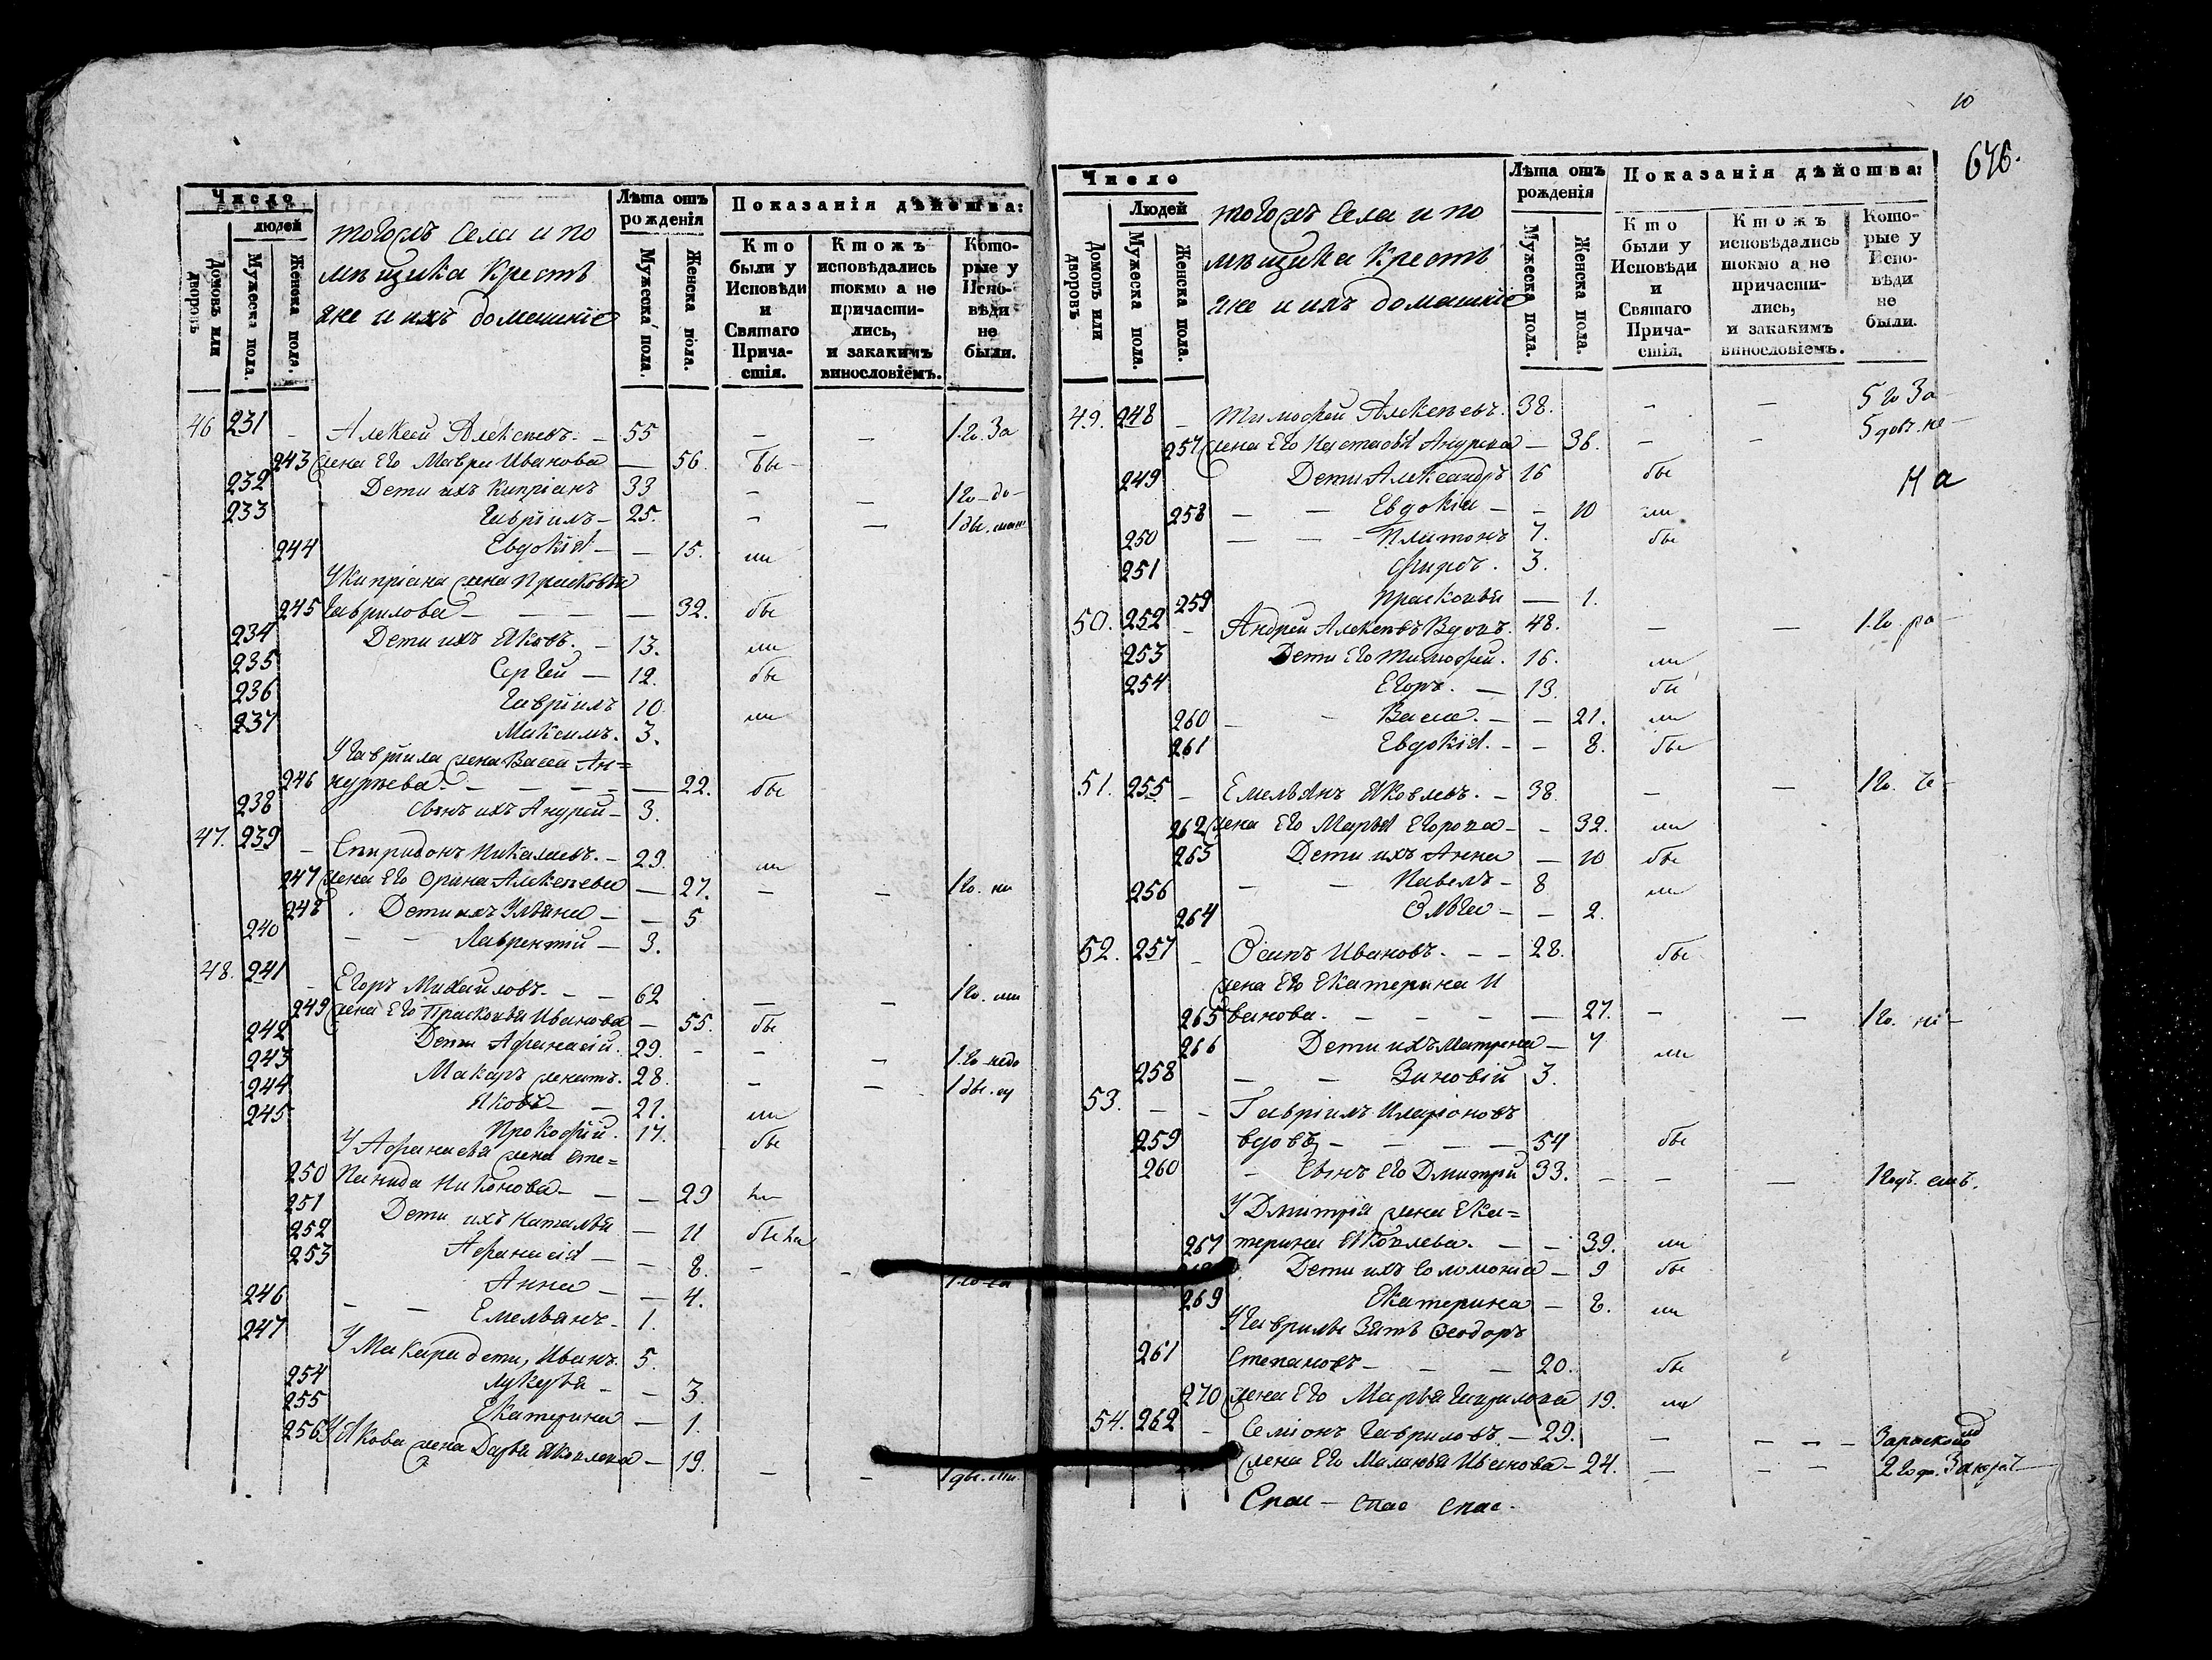 Число
людей
Домовъ или дворовъ
Мужеска пола.
Женска пола.
тогожъ села и по
мѣщика Кресть
яне и ихъ домашніе
Лѣта отъ рожденія
Мужеска пола.
Женска пола.
Показанія дѣйства:
Кто были у Исповѣди и Святаго Прича-стія.
Ктожъ исповѣдались токмо а не причасти-лись, и закакимъ винословіемъ.
Кото-рые у Испо-вѣди не были.
46 231 – Алексей Алексеевъ. – 55 – – 1. го За
243 жена Его Мавра Иванова – 56. бы –
232 Дети ихъ Кипріанъ 33 – – 1 го – до –
233 Гавріилъ – 25. – – 1 бы.
244 Евдокія – – 15. ли
У Кипріана жена Прасковья
245 Гаврилова – – – – 32. бы
234 Дети ихъ Яковъ. – 13. ли
235 Сергей – 12. бы
236 Гавріилъ 10. ли
237 Максимъ. 3.
У Гавріила жена Васса Ан=
246 дреева. – – – – – 22. бы
238 Сынъ ихъ Андрей – 3.
47. 239 – Спиридонъ Николаевъ. – 29. ли
247 жена Его Орина Алексеева – 27. – – 1 го. ни
248 Дети ихъ Ульяна – – 5
240 – – Лаврентій – 3.
48. 241 – Егоръ Михайловъ. – – 62 – – 1 го. ли
249 жена Его Прасковья Иванова – 55. бы
242 Дети Афанасій. 29. – – – 1. го недо
243 Макаръ женатъ. 28. – – 1 бы. су
244 Яковъ – – 21. ли
245 Прокофій. 17. бы
У Афанасья жена Сте=
250 панида Никонова – – – 29 ли
251 Дети ихъ Наталья – 11 бы ли
252 Афанасія – – 8. – –
253 Анна – – 4.
246 – – Емельянъ – 1.
247 У Макара дети, Иванъ. 5.
254 Лукерья – – 3.
255 Екатерина – 1.
256 У Якова жена Дарья Яковлева – 19. – –
10
646.
Число
Людей
Домовъ или дворовъ
Мужеска пола.
Женска пола.
тогожъ села и по
мѣщика Кресть
яне и ихъ домашніе
Лѣта отъ рожденія
Мужеска пола.
Женска пола.
Показанія дѣйства:
Кто были у Исповѣди и Святаго Прича-стія.
Ктожъ исповѣдались токмо а не причасти-лись, и закакимъ винословіемъ.
Кото-рые у Испо-вѣди не были.
49. 248 – Тимофей Алексеевъ. 38. – – 5 го За –
257 жена Его Настасья Андреева – 36. – – 5
249 Дети Александръ 16 бы На
258 – – Евдокія – – 10 ли
250 – – – Платонъ 7. бы
251 Фирсъ. 3.
259 Прасковья – 1.
50. 252 – Андрей Алексеевъ Вдовъ. 48. – – 1. го. ра –
253 Дети Его Тимофей. 16. ли
254 Егоръ. – 13. бы
260 – – Васса. – – 21. ли
261 Евдокія. – – 8. бы
51. 255 – Емельянъ Яковлевъ. – 38. – – 1 го. че –
262 жена Его Марья Егорова – – 32. ли
263 Дети ихъ Анна – 10 бы
256 – – Павелъ – 8 ли
264 Ольга – – 2.
52. 257 – Осипъ Ивановъ. – – 28. бы
жена Его Екатерина И
265 ванова. – – – – 27. – – 1 го. не –
266 Дети ихъ Матрена – 7 ли
258 – – Зиновій 3.
53. – – Гавріилъ Иларіоновъ
259 вдовъ – – – – 54 бы
260 – Сынъ Его Дмитрій 33. – – – 1
У Дмитрія жена Ека=
267 терина Яковлева. – – 39. ли
Дети ихъ Соломонія – 9 бы
269 Екатерина – 8. ли
У Гаврилы Зять Феодоръ
261 Степановъ – – – 20. бы
270 жена Его Марья Гаврилова 19. ли
54. 262 – Семіонъ Гавриловъ – 29. – – – –
жена Его Маланья Иванова – 24. – – –
Спас – спас спас.